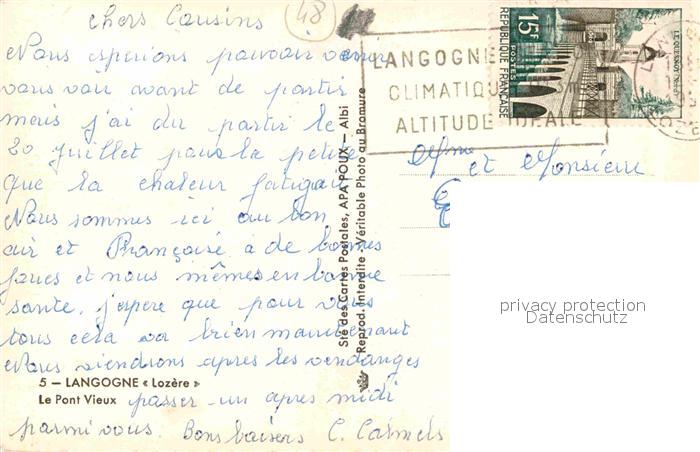 chers Cousins
48
Nous esperions pouvoir venir
vous voir avant de partir
mais j'ai du partir le
20 juillet pour la petite
que la chaleur fatiguait
Nous sommes ici au bon
air et Françoise a de bonnes
joues et nous mêmes en bonne
sante. j'espere que pour vous
tous cela va bien maintenant
Nous viendrons apres les vendanges
5 — LANGOGNE « Lozère »
Le Pont Vieux
passer un apres midi
parmi vous. Bons baisers C. Calmels
Sté des Cartes Postales, APA POUX — Albi
Reprod. Interdite - Véritable Photo au Bromure
LANGOGNE
CLIMATIQUE
ALTITUDE IDEALE
15F
POSTES
REPUBLIQUE FRANÇAISE
LE QUESNOY (Nord)
Mme et Monsieur
privacy protection
Datenschutz